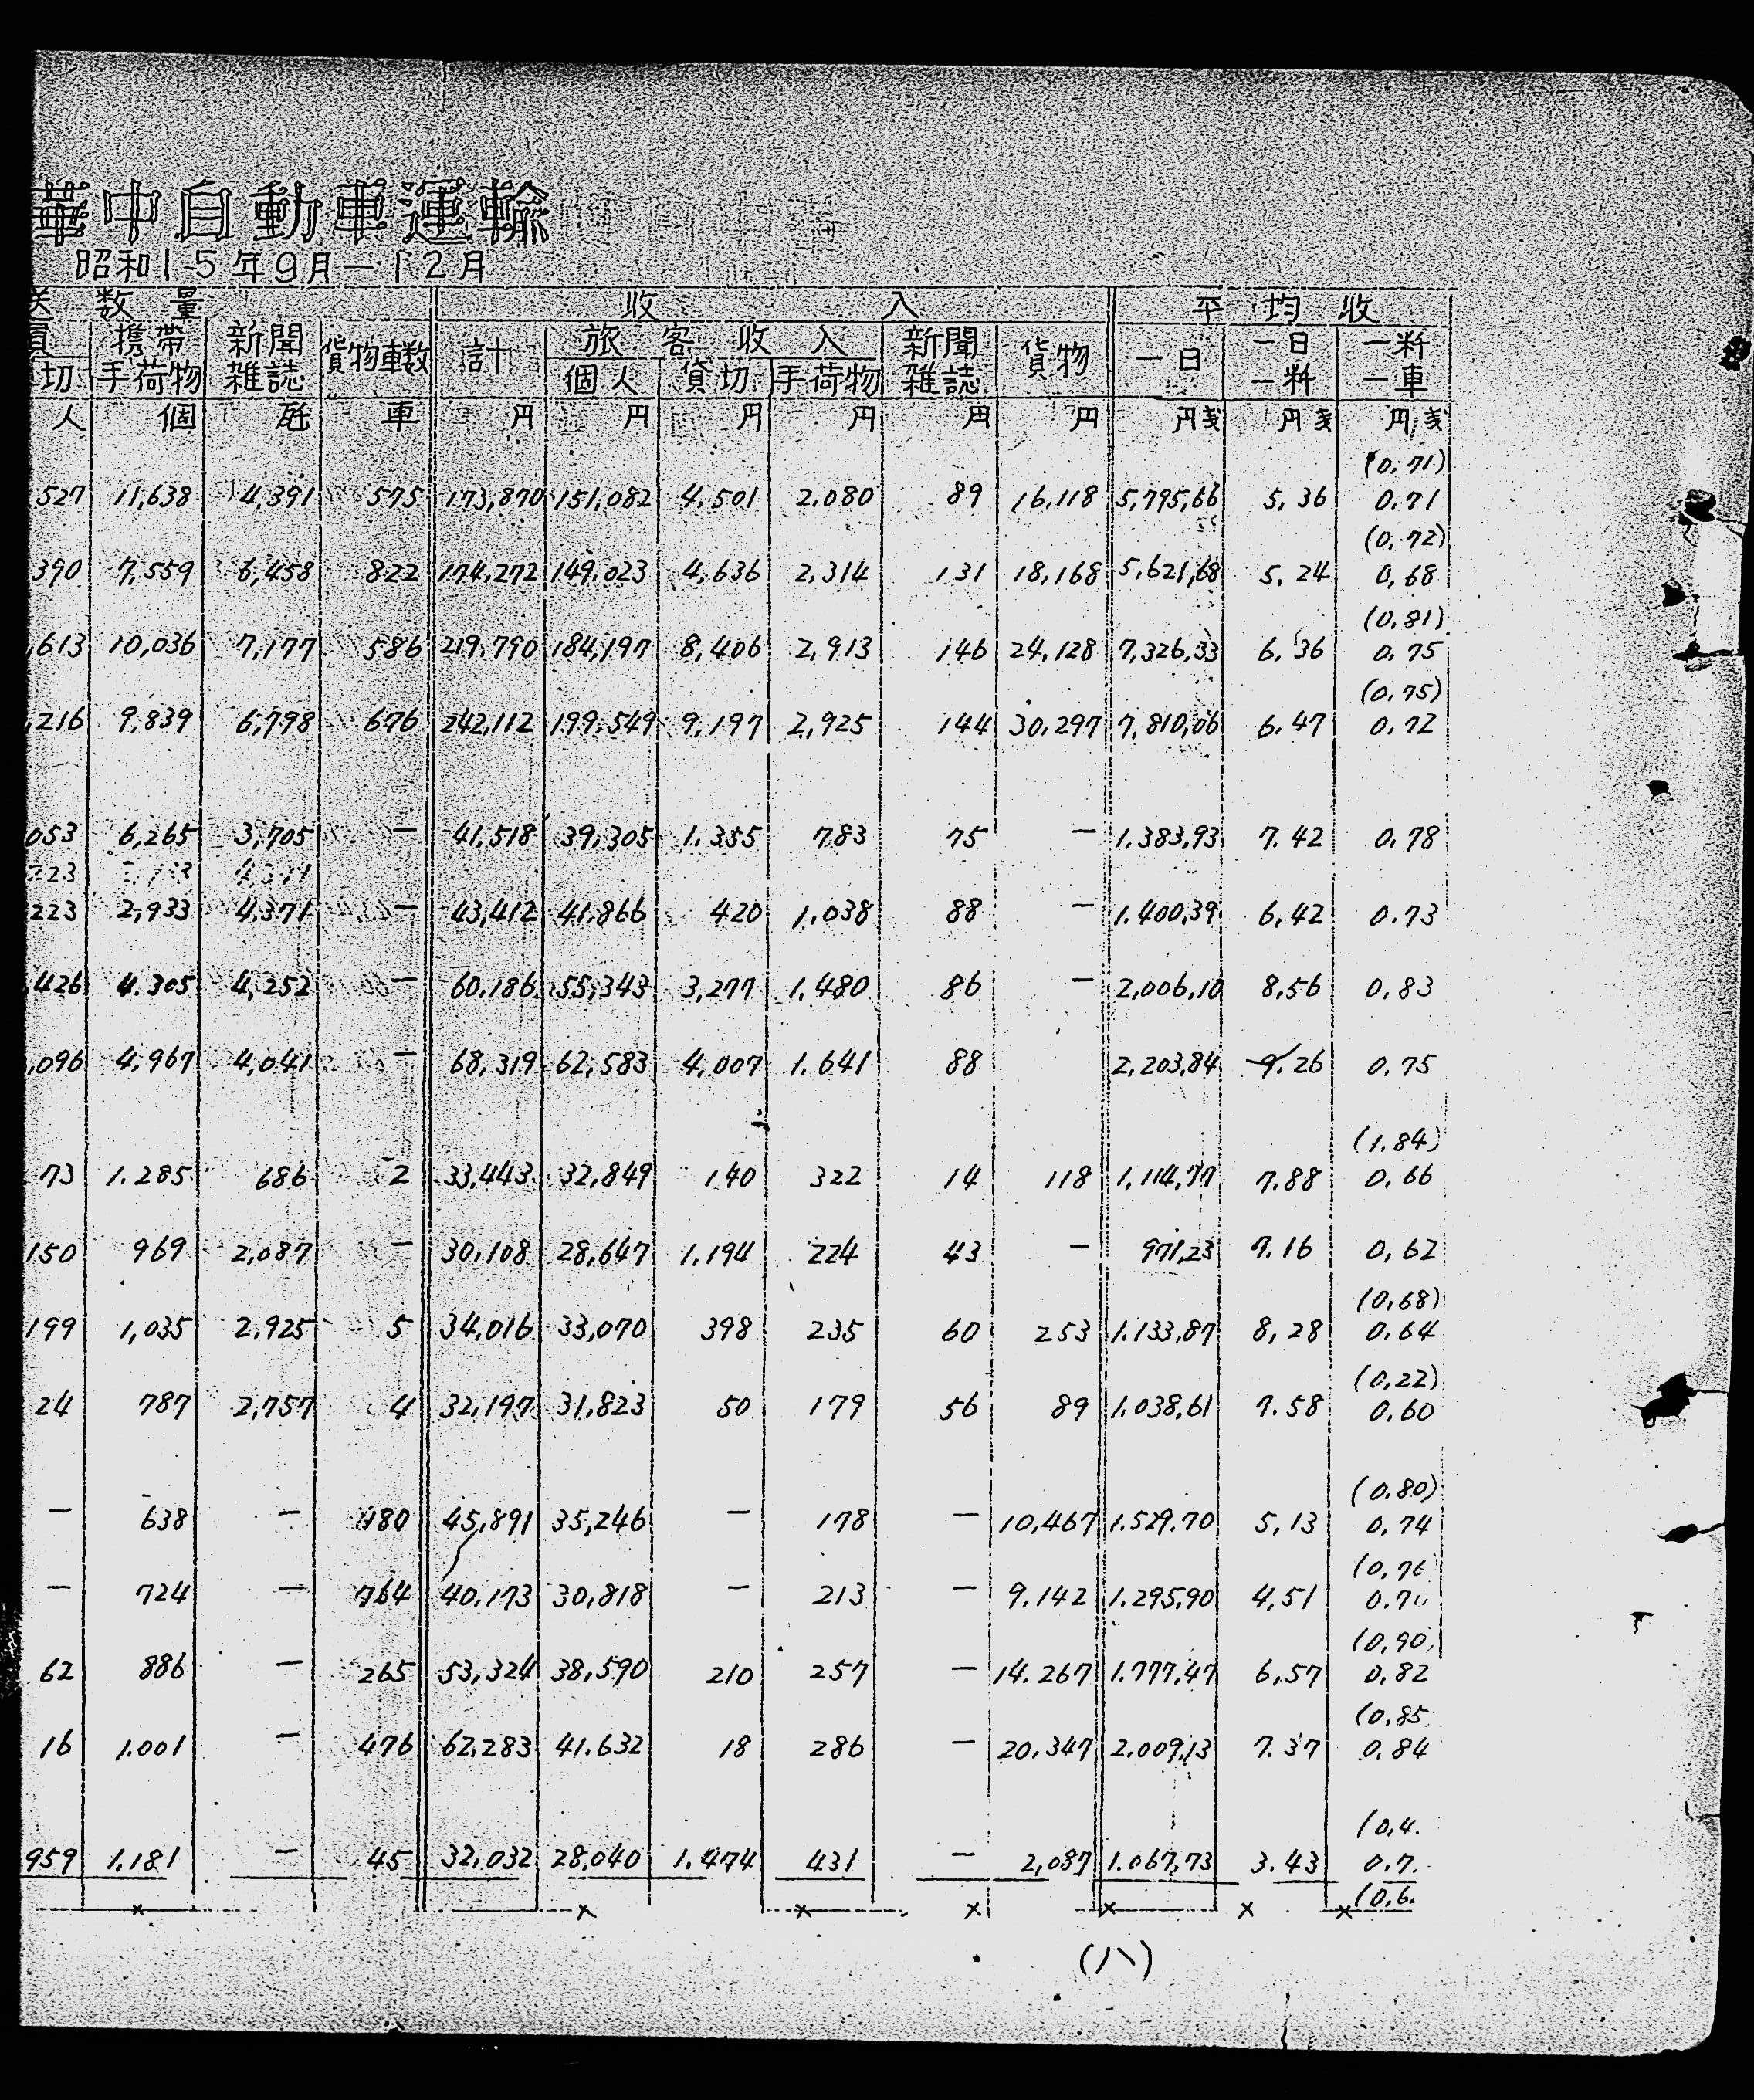 華中自動車運輸
昭和15年9月—12月
送 数 量 収 入 平 均 収
携帯 新聞 貨物車数 計 旅 客 収 入 新聞 貨物 一日 一日 一粁
切 手荷物 雑誌 個人 貸切 手荷物 雑誌 一粁 一車
人 個 瓩 車 円 円 円 円 円 円 円銭 円銭 円銭
(0.71)
527 11,638 4,391 575 173,870 151,082 4,501 2,080 89 16,118 5,795,66 5,36 0.71
(0,72)
390 7,559 6,458 822 174,272 149,023 4,636 2,314 131 18,168 5,621,68 5,24 0,68
(0,81)
,613 10,036 7,177 586 219,790 184,197 8,406 2,913 146 24,128 7,326,33 6,36 0.75
(0.75)
,216 9,839 6,798 676 242,112 199,549 9,197 2,925 144 30,297 7,810,06 6.47 0.72
053 6,265 3,705 — 41,518 39,305 1.355 783 75 — 1.383,93 7.42 0.78
223
223 2,933 4,371 — 43,412 41,866 420 1.038 88 — 1.400,39 6,42 0.73
,426 4.305 4,252 — 60,186 55,343 3,277 1,480 86 — 2,006,10 8,56 0,83
,096 4,967 4,041 — 68,319 62,583 4,007 1.641 88 2,203,84 9.26 0.75
(1,84)
73 1.285 686 2 33,443 32,849 140 322 14 118 1,114,77 7.88 0,66
150 969 2,087 — 30,108 28,647 1.194 224 43 — 971,23 7.16 0,62
(0,68)
199 1,035 2,925 5 34,016 33,070 398 235 60 253 1.133,87 8,28 0.64
(0,22)
24 787 2,757 4 32,197 31,823 50 179 56 89 1.038,61 7.58 0.60
(0.80)
— 638 — 180 45,891 35,246 — 178 — 10,467 1.529.70 5,13 0,74
(0,76
— 724 — 764 40.173 30,818 — 213 — 9.142 1.295.90 4,51
(0,90)
62 886 — 265 53,324 38,590 210 257 — 14.267 1.777,47 6,57 0,82
(0,85
16 1.001 — 476 62.283 41.632 18 286 — 20,347 2.009,13 7.37 0.84
(0,4.
959 1.181 — 45 32,032 28,040 1.474 431 — 2,087 1.067,73 3.43 0.7.
(0,6.
× × × × × × ×
(ハ)